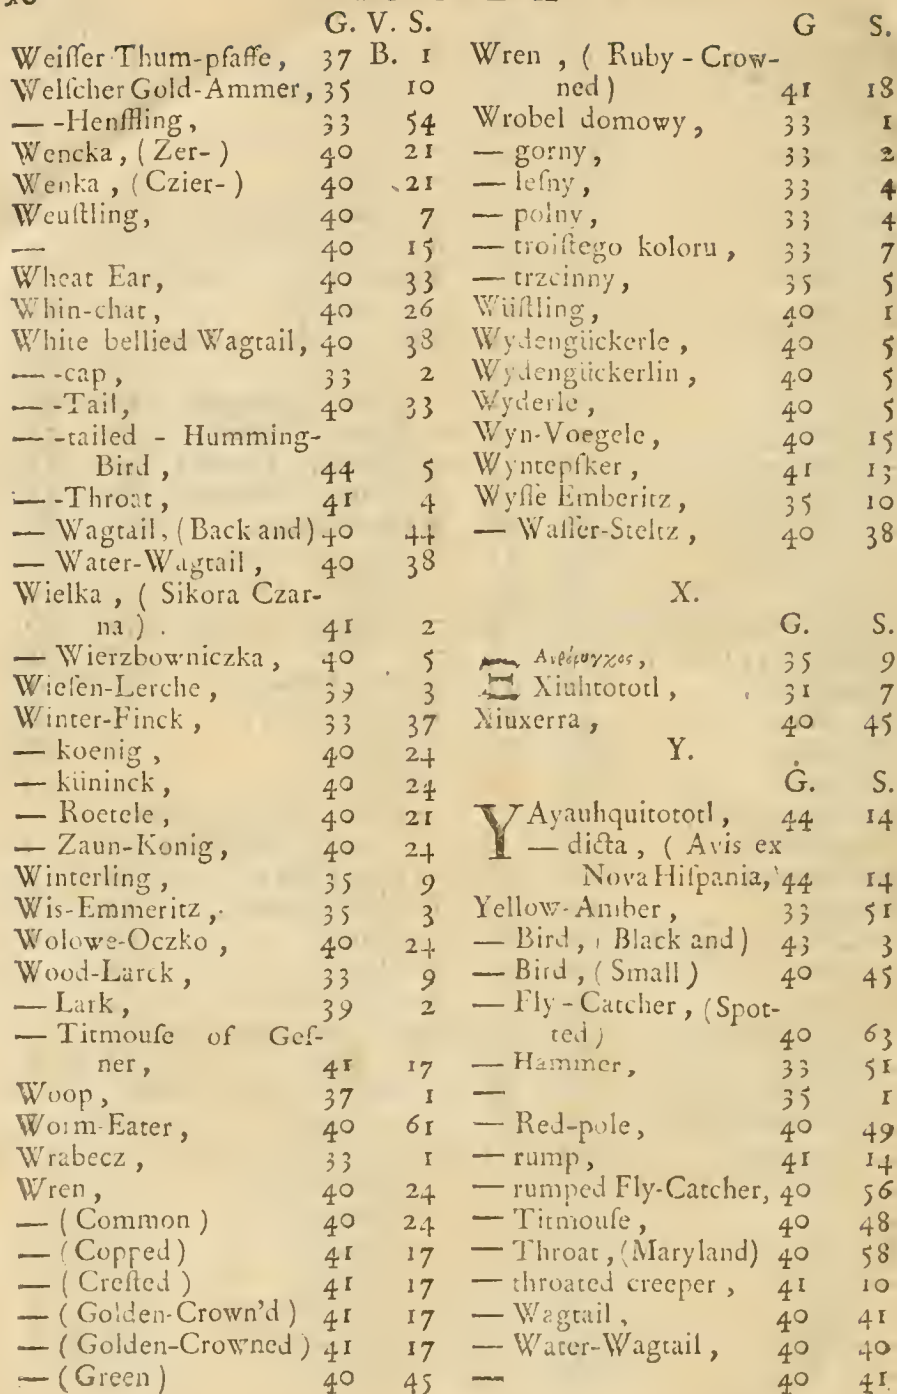 G. V. S.
Weiſſer Thum-pfaffe, 37 B. 1
Welſcher Gold-Ammer, 35 10
— -Henffling, 33 54
Wencka, (Zer-) 40 21
Wenka, (Czier-) 40 21
Weuſtling, 40 7
— 40 15
Wheat Ear, 40 33
Whin-chat, 40 26
White bellied Wagtail, 40 38
— -cap, 33 2
— -Tail, 40 33
— -tailed - Humming-
Bird, 44 5
— -Throat, 41 4
— Wagtail, (Back and) 40 44
— Water-Wagtail, 40 38
Wielka, (Sikora Czar-
na). 41 2
— Wierzbowniczka, 40 5
Wieſen-Lerche, 39 3
Winter-Finck, 33 37
— koenig, 40 24
— küninck, 40 24
— Roetele, 40 21
— Zaun-Konig, 40 24
Winterling, 35 9
Wis-Emmeritz, 35 3
Wolowe-Oczko, 40 24
Wood-Larck, 33 9
— Lark, 39 2
— Titmouſe of Geſ-
ner, 41 17
Woop, 37 1
Worm-Eater, 40 61
Wrabecz, 33 1
Wren, 40 24
— (Common) 40 24
— (Copped) 41 17
— (Creſted) 41 17
— (Golden-Crown'd) 41 17
— (Golden-Crowned) 41 17
— (Green) 40 45
G S.
Wren, (Ruby-Crow-
ned) 41 18
Wrobel domowy, 33 1
— gorny, 33 2
— leſny, 33 4
— polny, 33 4
— troiſtego koloru, 33 7
— trzcinny, 35 5
Wüſtling, 40 1
Wydengückerle, 40 5
Wydengückerlin, 40 5
Wyderle, 40 5
Wyn-Voegele, 40 15
Wyntepſker, 41 13
Wyſſe Emberitz, 35 10
— Waſſer-Steltz, 40 38
X.
G. S.
35 9
Xiuhtototl, 31 7
Xiuxerra, 40 45
Y.
G. S.
YAyauhquitototl, 44 14
— dicta, (Avis ex
Nova Hiſpania, 44 14
Yellow-Amber, 33 51
— Bird, (Black and) 43 3
— Bird, (Small) 40 45
— Fly-Catcher, (Spot-
ted) 40 63
— Hammer, 33 51
— 35 1
— Red-pole, 40 49
— rump, 41 14
— rumped Fly-Catcher, 40 56
— Titmouſe, 40 48
— Throat, (Maryland) 40 58
— throated creeper, 41 10
— Wagtail, 40 41
— Water-Wagtail, 40 40
— 40 41